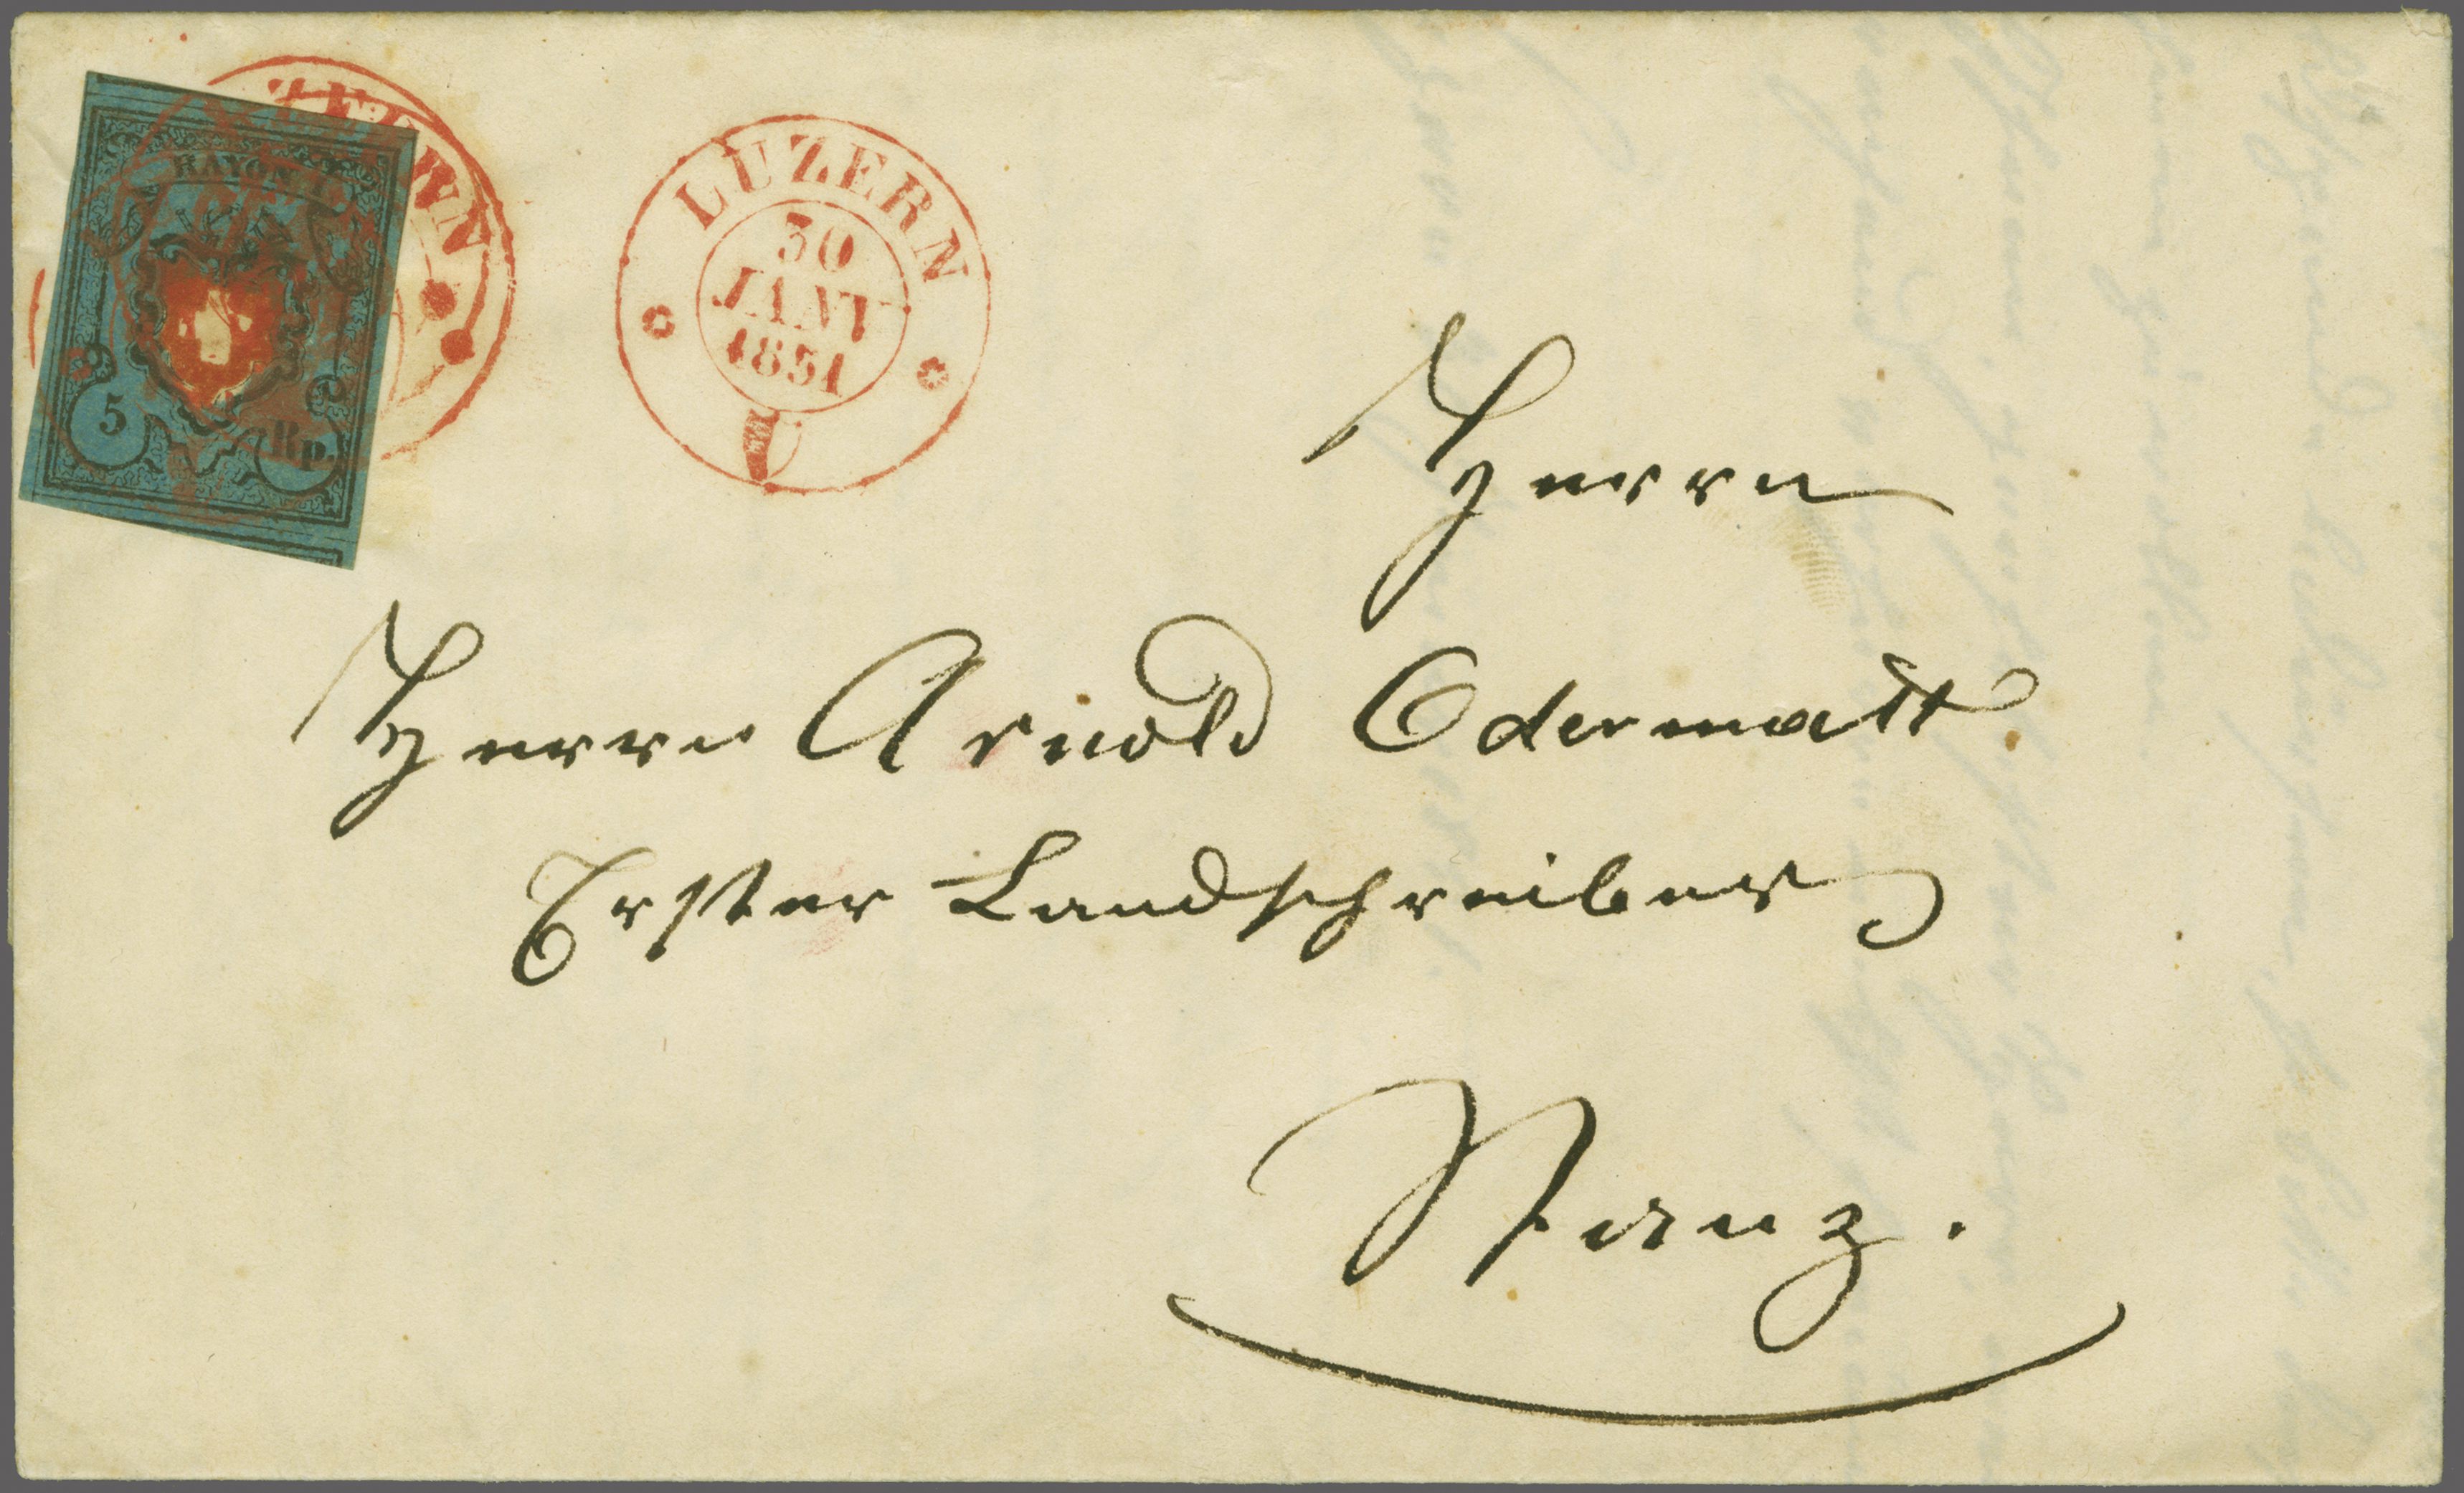 RAYON I.
5 Rp.
LUZERN
LUZERN
30
JANV
1851
Herrn
Herrn Arnold Odermatt
Erster Landschreiber
Stanz.